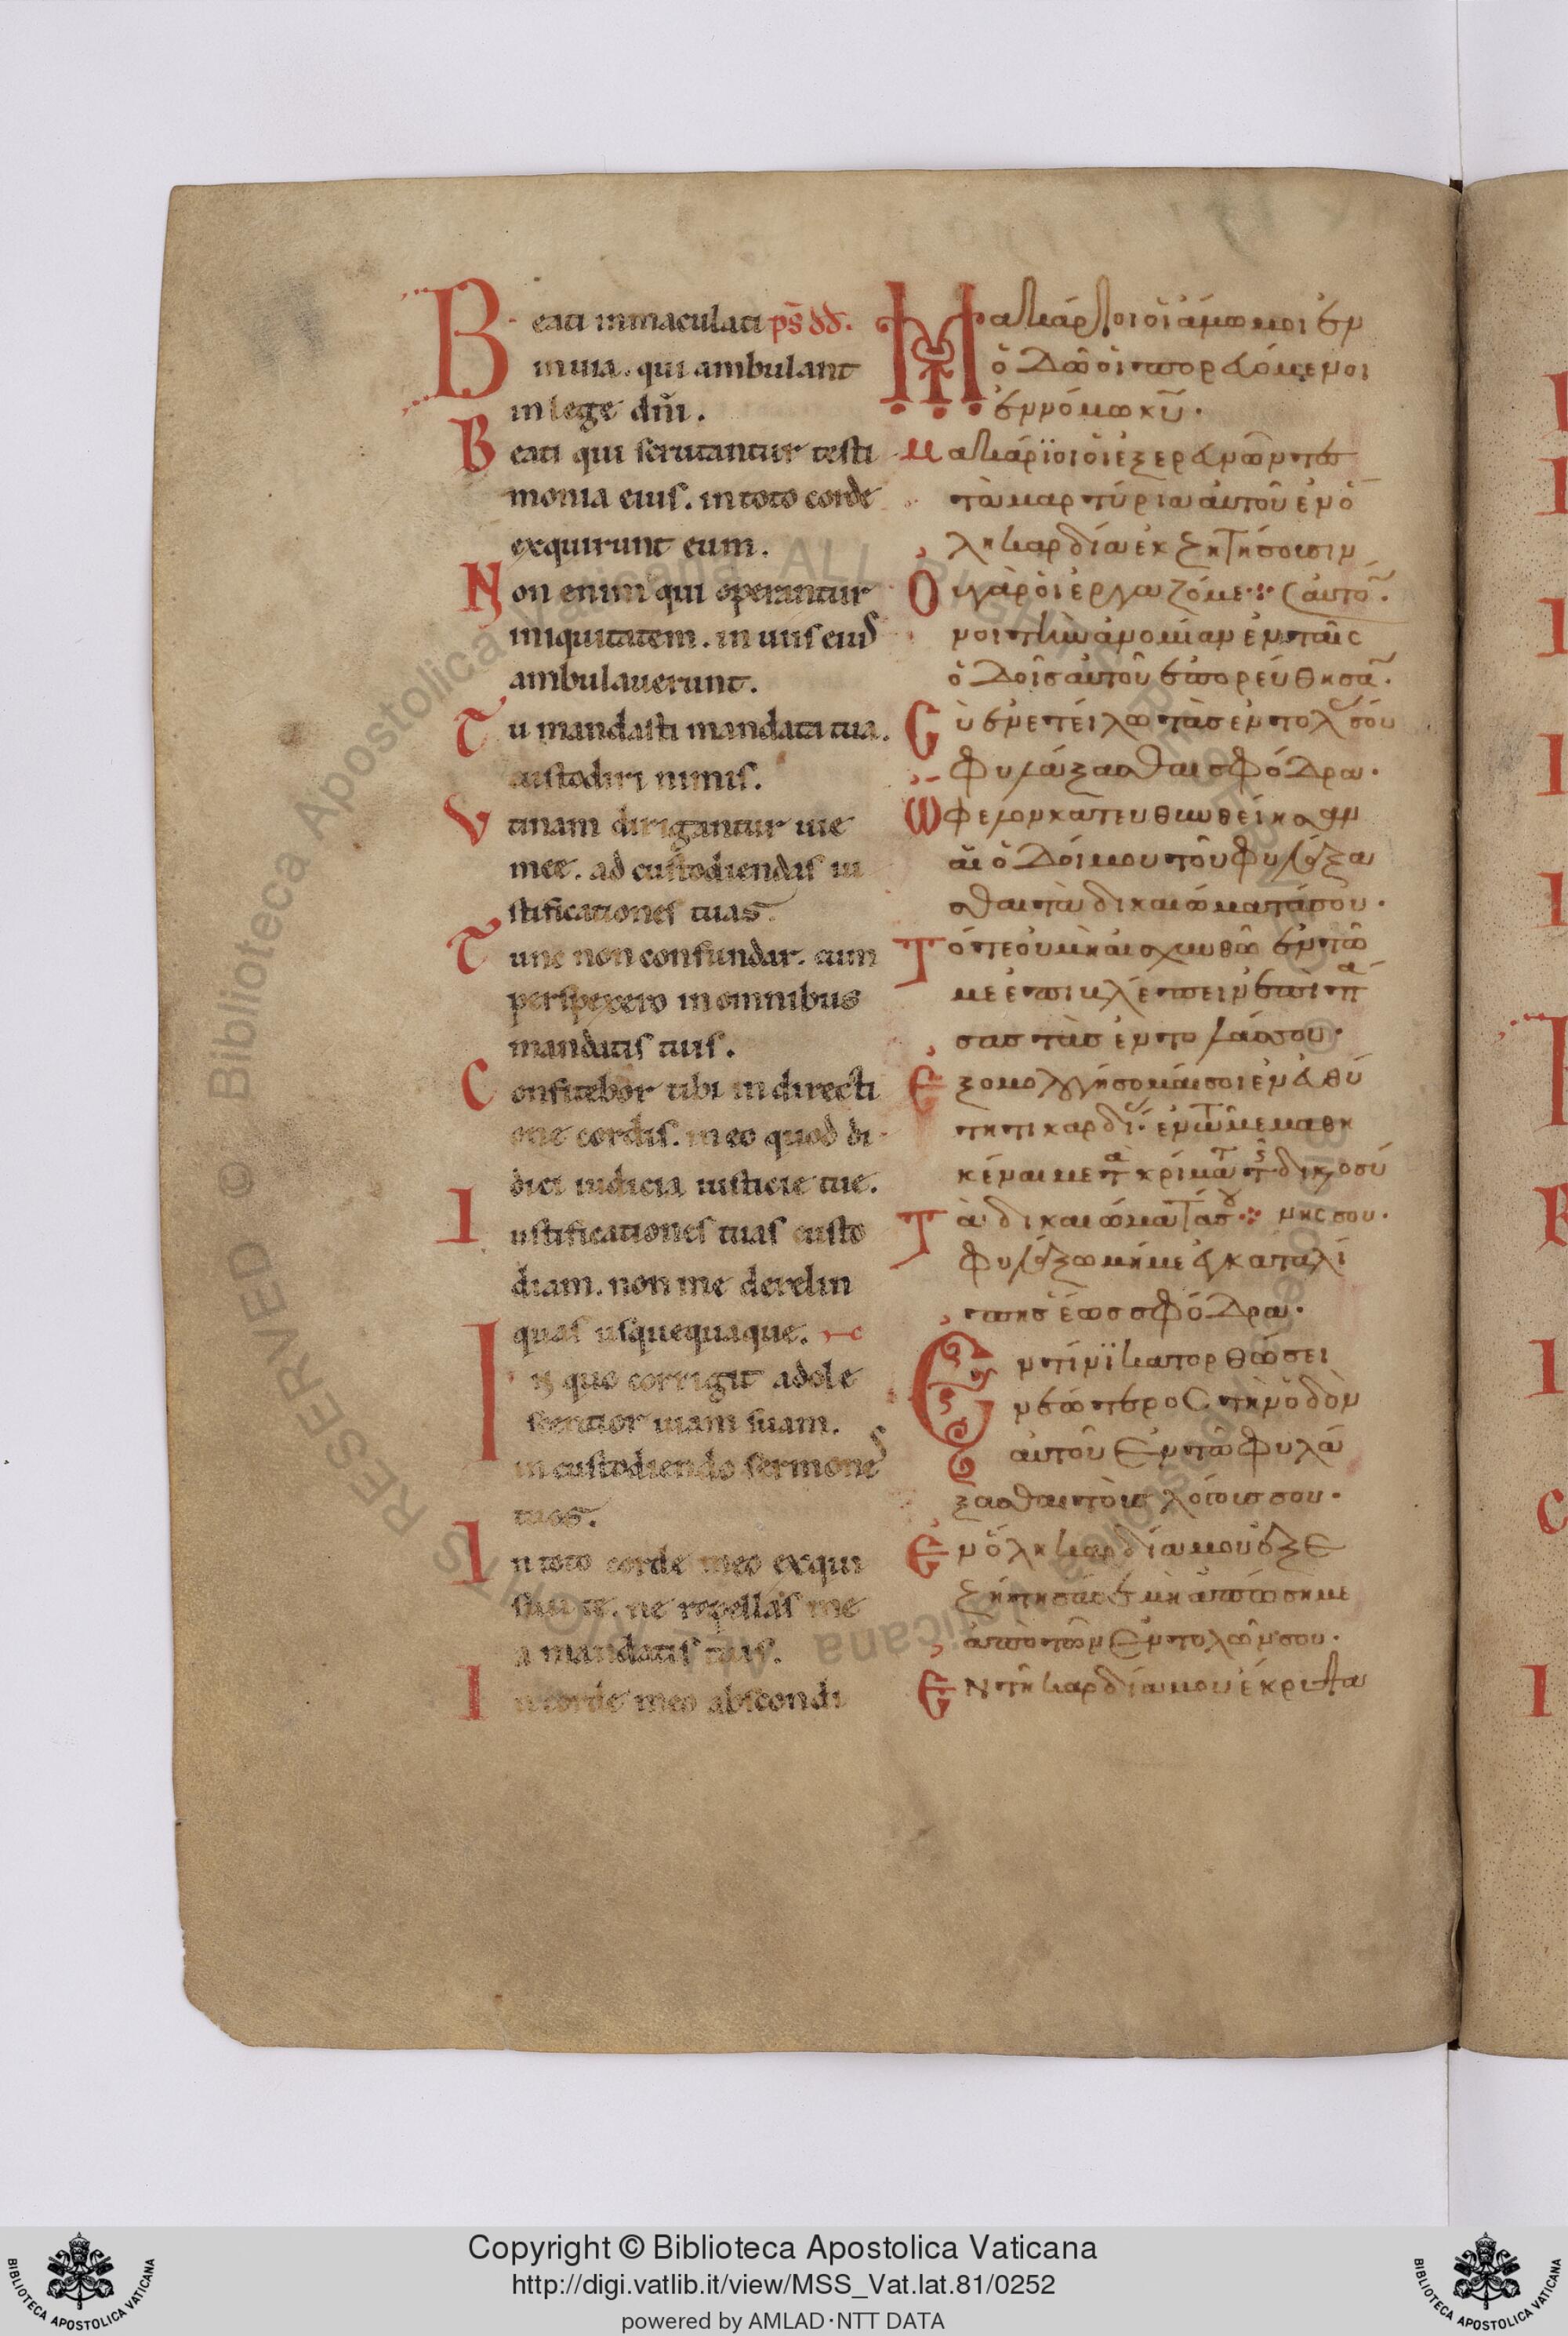 Beati inmaculati ps̄ dd̄.
in uia. qui ambulant
in lege dn̄i.
Beati qui scrutantur testi
monia eius. in toto corde
exquirunt eum.
Non enim qui operantur
iniquitatem. in uiis eius
ambulauerunt.
Tu mandasti mandata tua.
custodiri nimis.
Vtinam dirigantur uie
mee. ad custodiendas iu
stificationes tuas.
Tunc non confundar. cum
perspexero in omnibus
mandatis tuis.
Confitebor tibi in directi
one cordis. in eo quod di
dici iudicia iusticie tue.
Iustificationes tuas custo
diam. non me derelin
quas usquequaque.
In quo corrigit adole
scentior uiam suam.
in custodiendo sermones
tuos.
In toto corde meo exqui
siui te. ne repellas me
a mandatis tuis.
In corde meo abscondi
Μακάριοι οἱ ἄμωμοι ἐν
ὁδῶ οἱ πορευόμενοι
ἐν νόμω κ̅υ̅.
Μακάριοι οἱ ἐξερευνῶντες
τὰ μαρτύρια αὐτοῦ ἐν ὅ
λη καρδία ἐκζητήσουσιν
Οὐ γὰρ οἱ ἐργαζόμε ⁘ αὐτό̅.
νοι τὴν ἀνομίαν ἐν ταῖς
ὁδοῖς αὐτοῦ ἐπορεύθησα̅.
Σὺ ἐνετείλω τὰς ἐντολ σου
φυλάξασθαι σφόδρα.
Ὤφελον κατευθυνθείησαν
αἱ ὁδοί μου τοῦ φυλάξα
σθαι τὰ δικαιώματά σου.
Τότε οὐ μὴ αἰσχυνθῶ ἐν τῶ
με ἐπιβλέπειν ἐπὶ πά
σας τὰς ἐντολάς σου.
Ἐξομολογήσομαί σοι ἐν εὐθύ
τητι καρδί. ἐν τῶ με μαθη
κέναι με τὰ κρίματ τ̑ς δικεοσύ
Τὰ δικαιώματά σου ⁘ νης σου.
φυλάξω μή με ἐγκαταλί
πης ἕως σφόδρα.
Ἐν τίνι κατορθώσει
νεώτερος τὴν ὁδὸν
αὐτοῦ ἐν τῶ φυλά
ξασθαι τοὺς λόγους σου.
Ἐν ὅλη καρδία μου ἐξε
ζήτησά σε μὴ ἀπώση με
ἀπὸ τῶν ἐντολῶν σου.
Ἐν τῆ καρδία μου ἔκρυψα
Copyright © Biblioteca Apostolica Vaticana
http://digi.vatlib.it/view/MSS_Vat.lat.81/0252
powered by AMLAD·NTT DATA